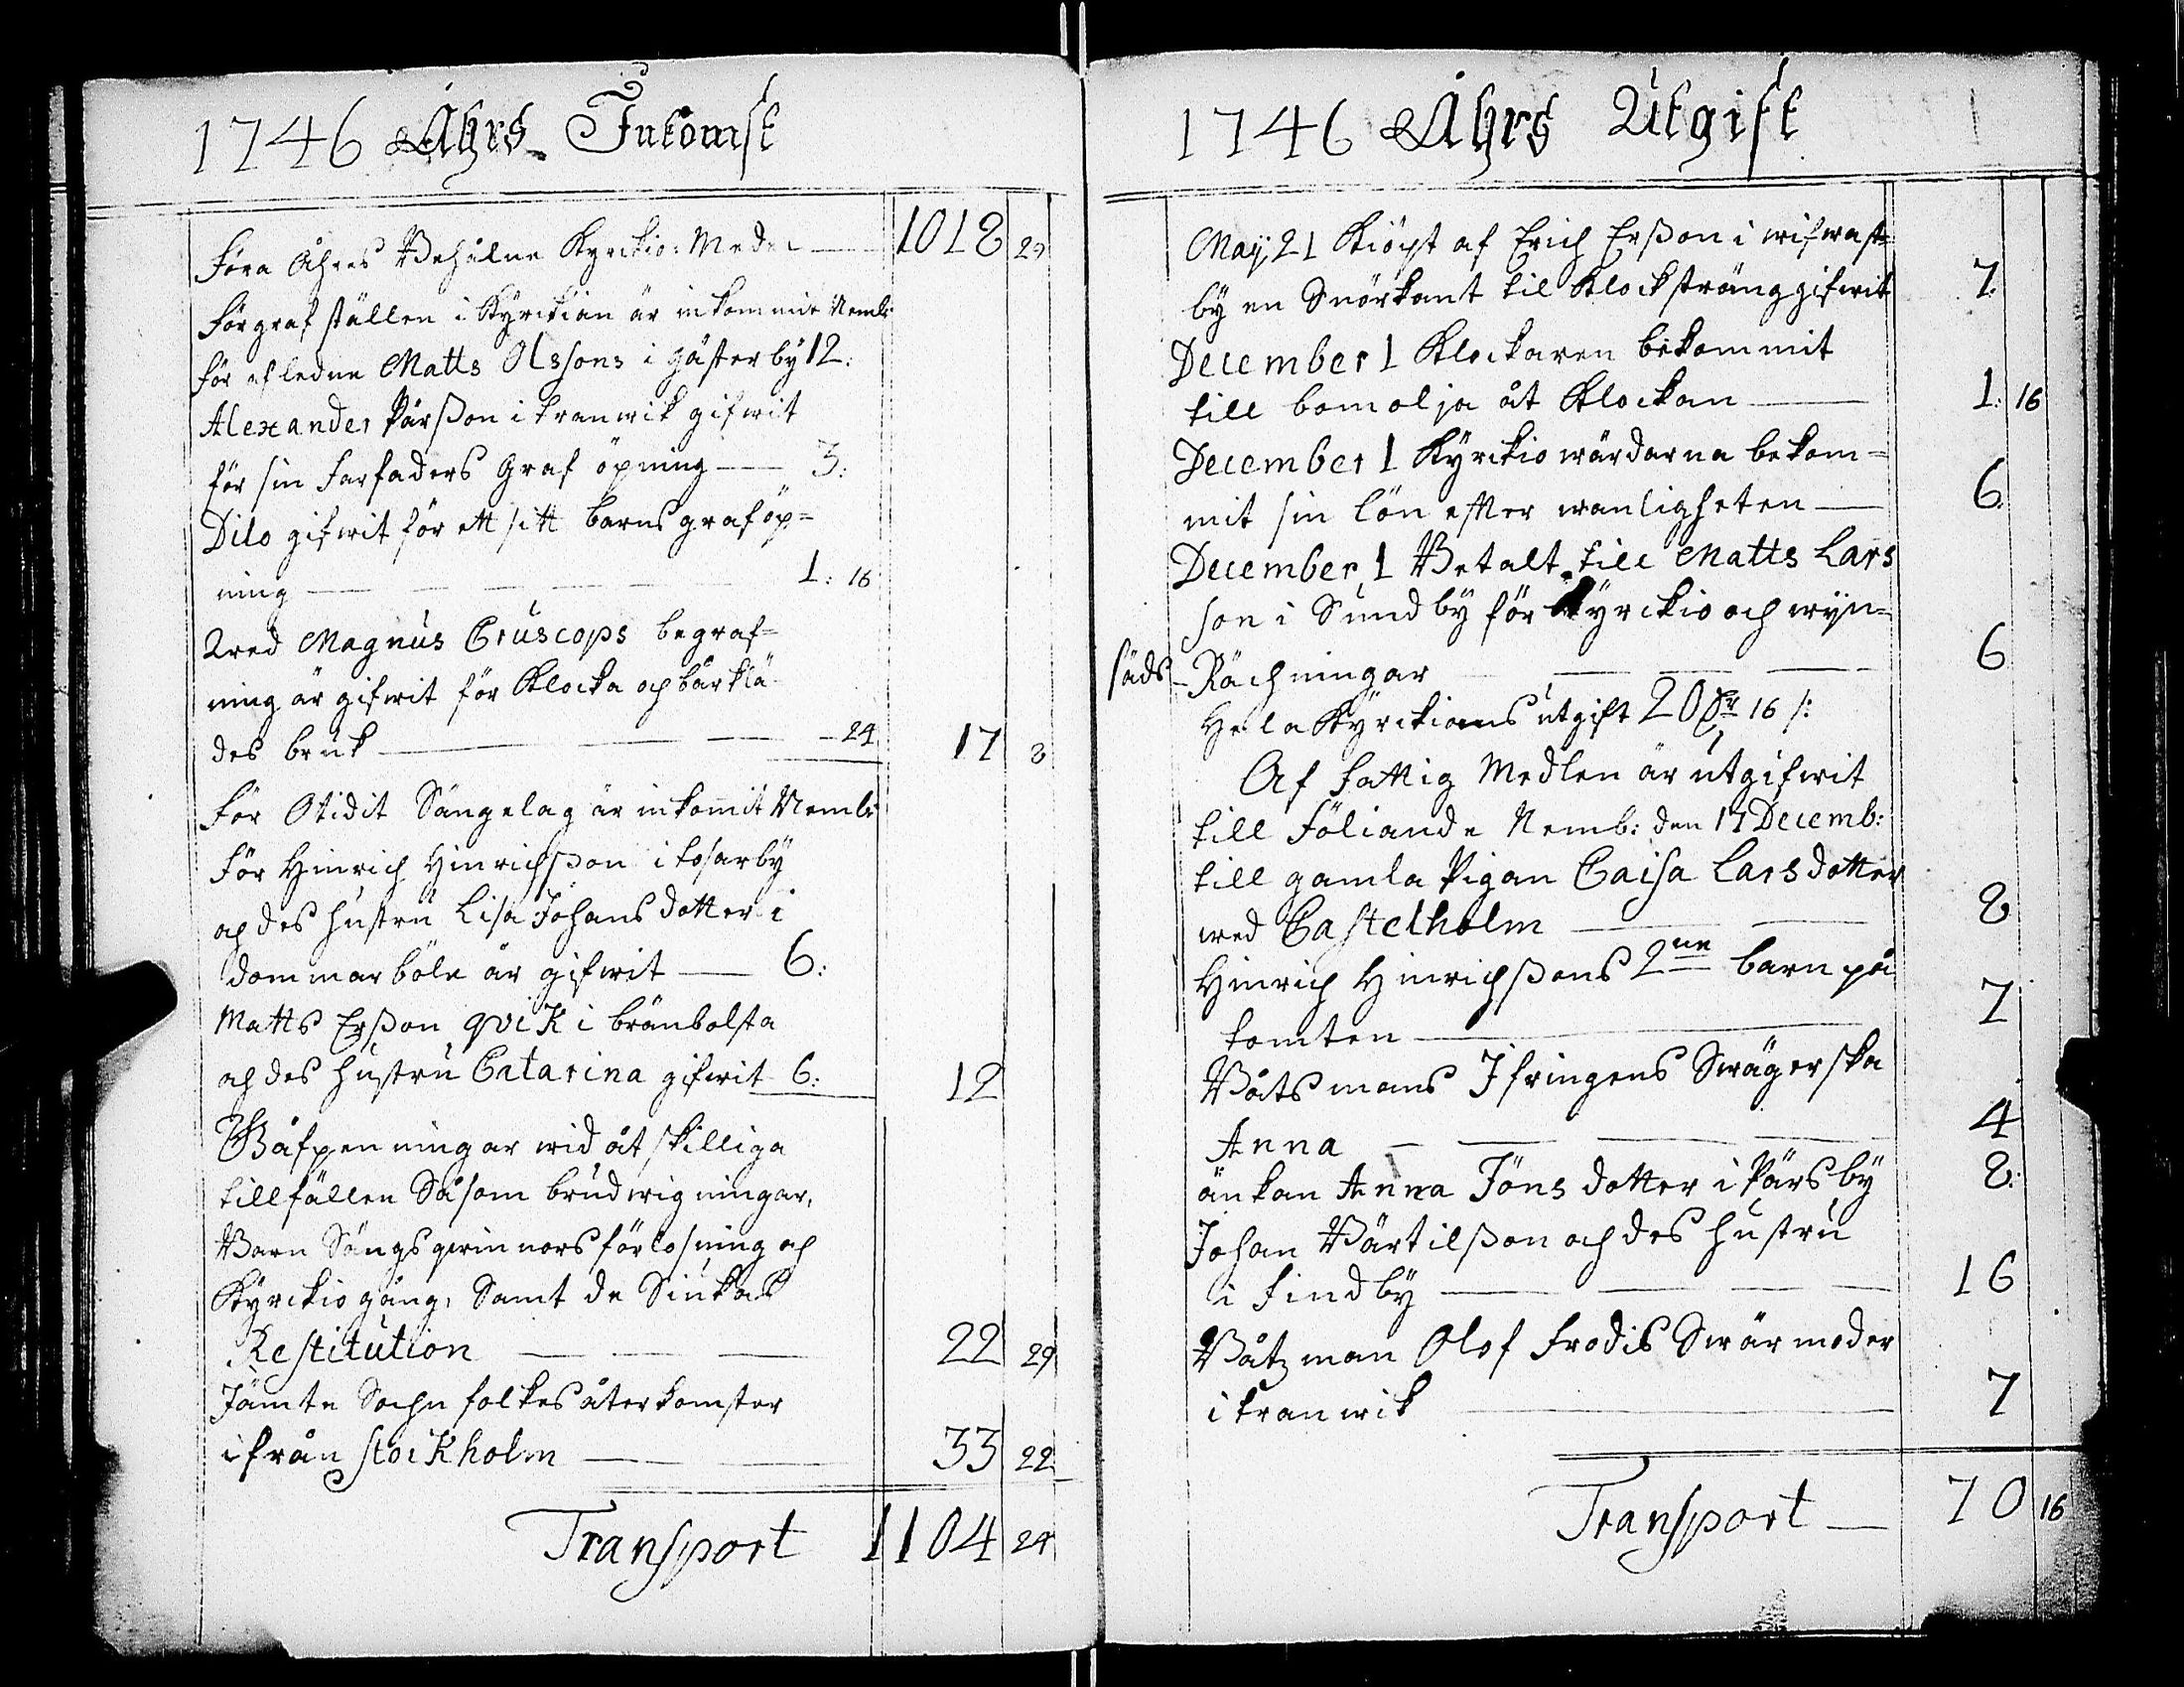 1746 Åhrs Inkomst
Föra Åhres Behålne Kyrckio: Medel 1018 29
För graf ställen i Kyrckian är inkommit Neml:
för afledne Matts Olssons i gästerby 12:
Alexander Pärsson i tranwik gifwit
för sin farfaders Graf öpning 3:
Dito gifwit för ett sitt barns graf öp=
ning 1: 16
wed Magnus Cruscops begraf=
ning är gifwit för Klocka och bårklä
des bruk 24 17 8
För Otidit Sängelag är inkomit Neml:
För Hinrich Hinrichsson i tosarby
och des hustru Lisa Johansdotter i
dommarböle är gifwit 6:
Matts Ersson qviK i bränbolsta
och des hustru Catarina gifwit 6: 12
Håfpenningar wid åtskilliga
tillfällen Såsom brudwigningar,
Barn Sängsqwinnors förlosning och
Kyrckiogång, Samt de Siukas
Restitution 22 29
Jämte Sochn folkes återkomster
ifrån StockHolm 33 22
Transport 1104 24
1746 Åhrs Utgift
Maij 21 Kiöpt af Erich Ersson i wifwast=
by en Snörkant til Klocksträng gifwit 7
December 1 Klockaren bekommit
till bomolja åt Klockan 1: 16
December 1 Kyrckiowärdarna bekom=
mit sin lön efter wanligheten 6
December 1 Betalt till Matts Lars
son i Sundby för Kyrckio och wijn=
säds Räckningar 6
Hela Kyrckians utgift 20 Dr 16 /:
Af fattig Medlen är utgifwit
till Följande Nemb: den 17 Decemb:
till gamla Pigan Caisa Larsdotter
wed Castelholm 8
Hinrich Hinrichssons 2ne barn på
tomten 7
Båtsmans Ifringens Swägerska
Anna 4
änkan Anna Jöns dotter i Pärsby 8:
Johan Bärtilsson och des hustru
i Findby 16
Båtzman Olof Frodis Swärmoder
i tranwik 7
Transport 70 16